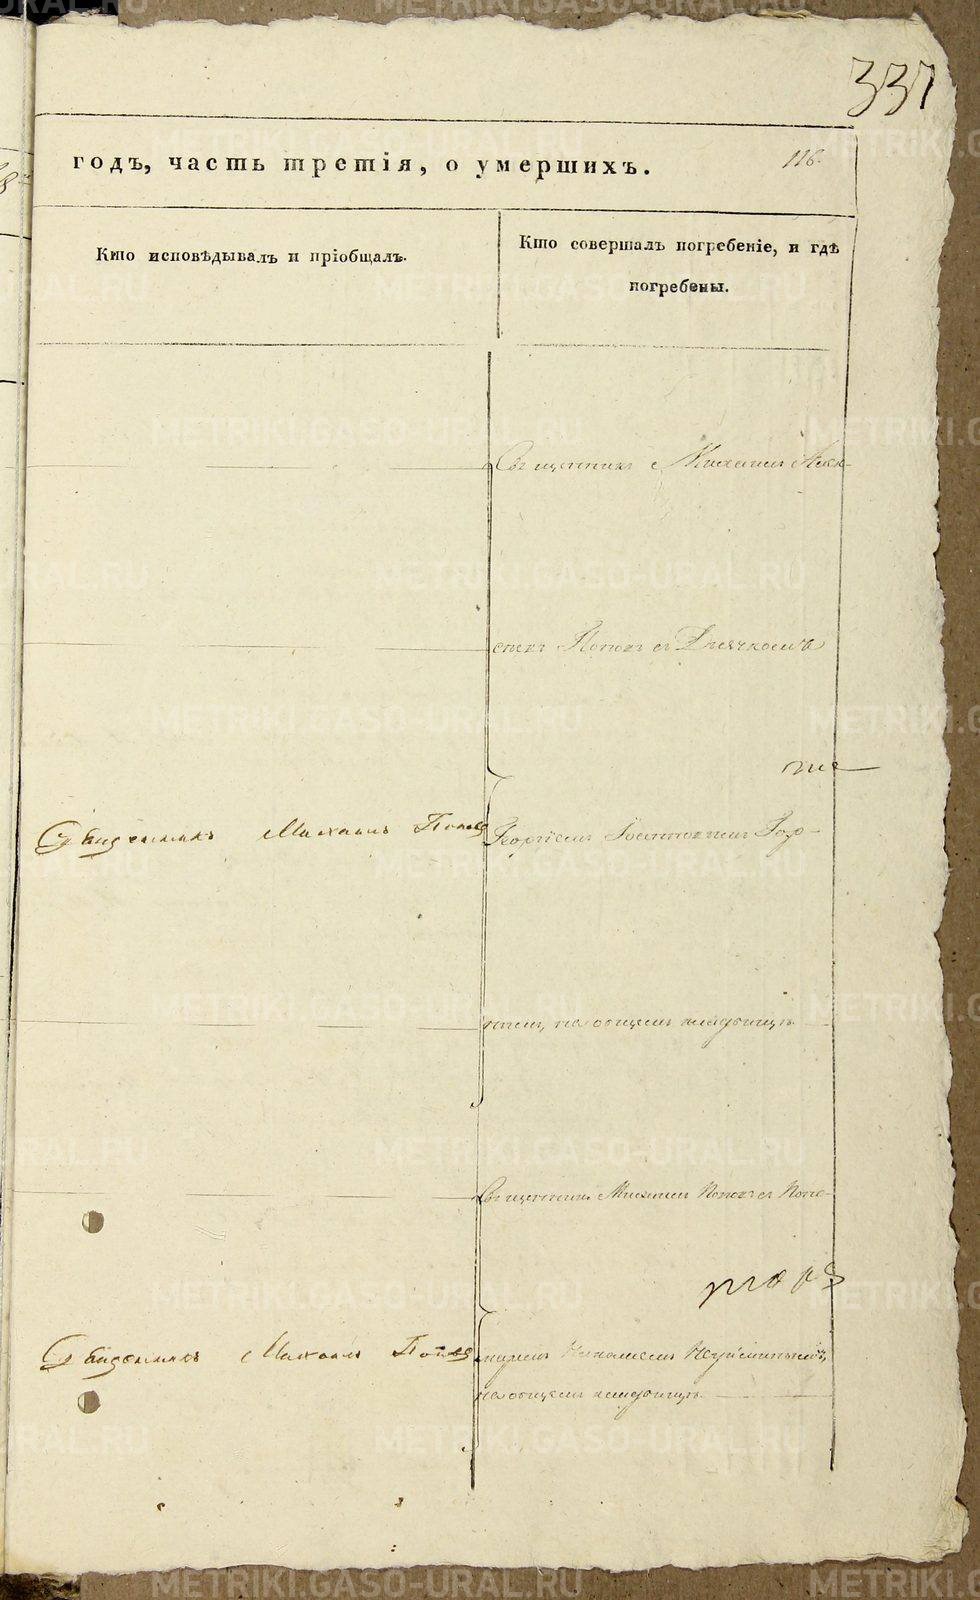 337
годъ, часть третія, о умершихъ.
116.
Кто исповѣдывалъ и пріобщалъ.
Кто совершалъ погребеніе, и гдѣ
погребены.
Священникъ Михаилъ
Поповъ съ Дьячкомъ
Священникъ Михаилъ Поповъ
Георгіемъ Іоанновымъ Гор-
на общемъ кладбищѣ
Священникъ Михаилъ Поповъ с Поно-
Священникъ Михаилъ Поповъ
на общемъ кладбищѣ
METRIKI.GASO-URAL.RU